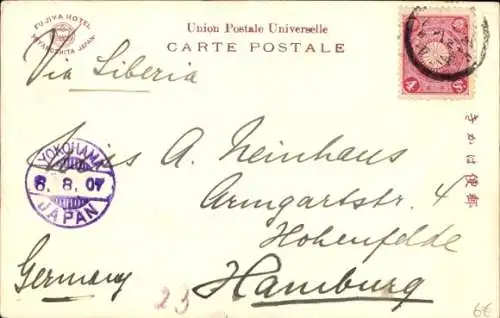 FUJIYA HOTEL
MIYANOSHITA JAPAN
Union Postale Universelle
CARTE POSTALE
Via Siberia
4 Sn
きかは便郵
YOKOHAMA
6.8.07
JAPAN
Miss A. Neinhaus
Armgartstr. 4
Hohenfelde
Hamburg
Germany
23
6€